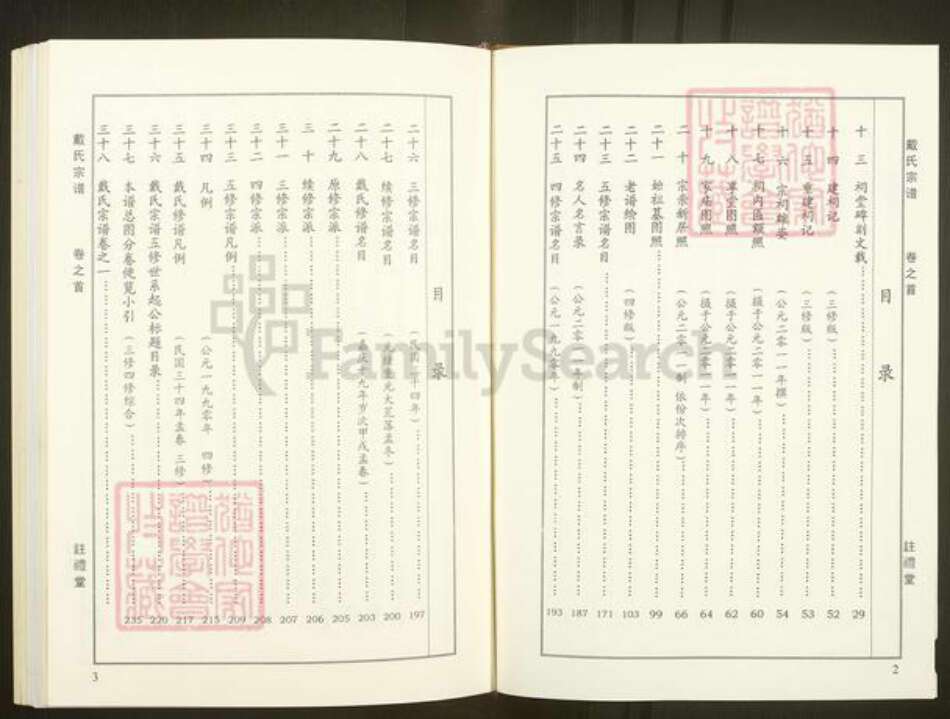 戴氏宗谱 卷之首 註禮堂
目 录
十三 祠堂碑刻文载 29
十四 建祠记 (三修版) 52
十五 重建祠记 (三修版) 53
十六 宗祠 (公元二零一一年撰) 54
十七 祠内匾额照 (摄于公元二零一一年) 60
十八 草堂图照 (摄于公元二零一一年) 62
十九 家庙图照 (摄于公元二零一一年) 64
二十 宗亲新居照 (公元二零一一制 依份次排序) 66
二十一 始祖墓图照 99
二十二 老谱绘图 (四修版) 103
二十三 五修宗谱名目 171
二十四 名人名言录 (公元二零一一年制) 187
二十五 四修宗谱名目 (公元一九九零年) 193
2
目 录
二十六 三修宗谱名目 (民国三十四年) 197
二十七 续修宗谱名目 (光绪 光大芷落孟冬) 200
二十八 戴氏修谱名目 (嘉庆十九年岁次甲戌孟春) 203
二十九 原修宗派 205
三十 续修宗派 206
三十一 三修宗派 207
三十二 四修宗派 208
三十三 五修宗谱凡例 209
三十四 凡例 (公元一九九零年 四修) 215
三十五 戴氏修谱凡例 (民国三十四年孟春 三修) 217
三十六 戴氏宗谱五修世系起公标题目录 220
三十七 本谱总图分卷便览小引 (三修四修综合) 235
三十八 戴氏宗谱卷之一
戴氏宗谱 卷之首 註禮堂
3
FamilySearch